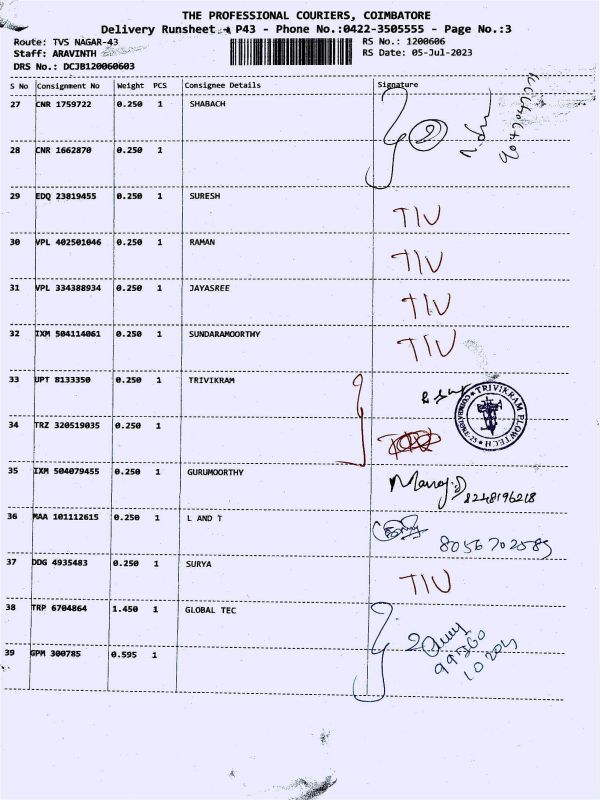 THE PROFESSIONAL COURIERS, COIMBATORE
Delivery Runsheet - P43 - Phone No.:0422-3505555 - Page No.:3
Route: TVS NAGAR-43 RS No.: 1200606
Staff: ARAVINTH RS Date: 05-Jul-2023
DRS No.: DCJB120060603
S No Consignment No Weight PCS Consignee Details Signature
27 CNR 1759722 0.250 1 SHABACH
2
28 CNR 1662870 0.250 1
29 EDQ 23819455 0.250 1 SURESH TIV
30 VPL 402501046 0.250 1 RAMAN TIV
31 VPL 334388934 0.250 1 JAYASREE TIV
32 IXM 504114061 0.250 1 SUNDARAMOORTHY TIV
33 UPT 8133350 0.250 1 TRIVIKRAM
TRIVIKRAM FLOWTECH
34 TRZ 320519035 0.250 1
35 IXM 504079455 0.250 1 GURUMOORTHY Manoj.D 8248196218
36 MAA 101112615 0.250 1 L AND T 8056702589
37 DDG 4935483 0.250 1 SURYA TIV
38 TRP 6704864 1.450 1 GLOBAL TEC 2
39 GPM 300785 0.595 1